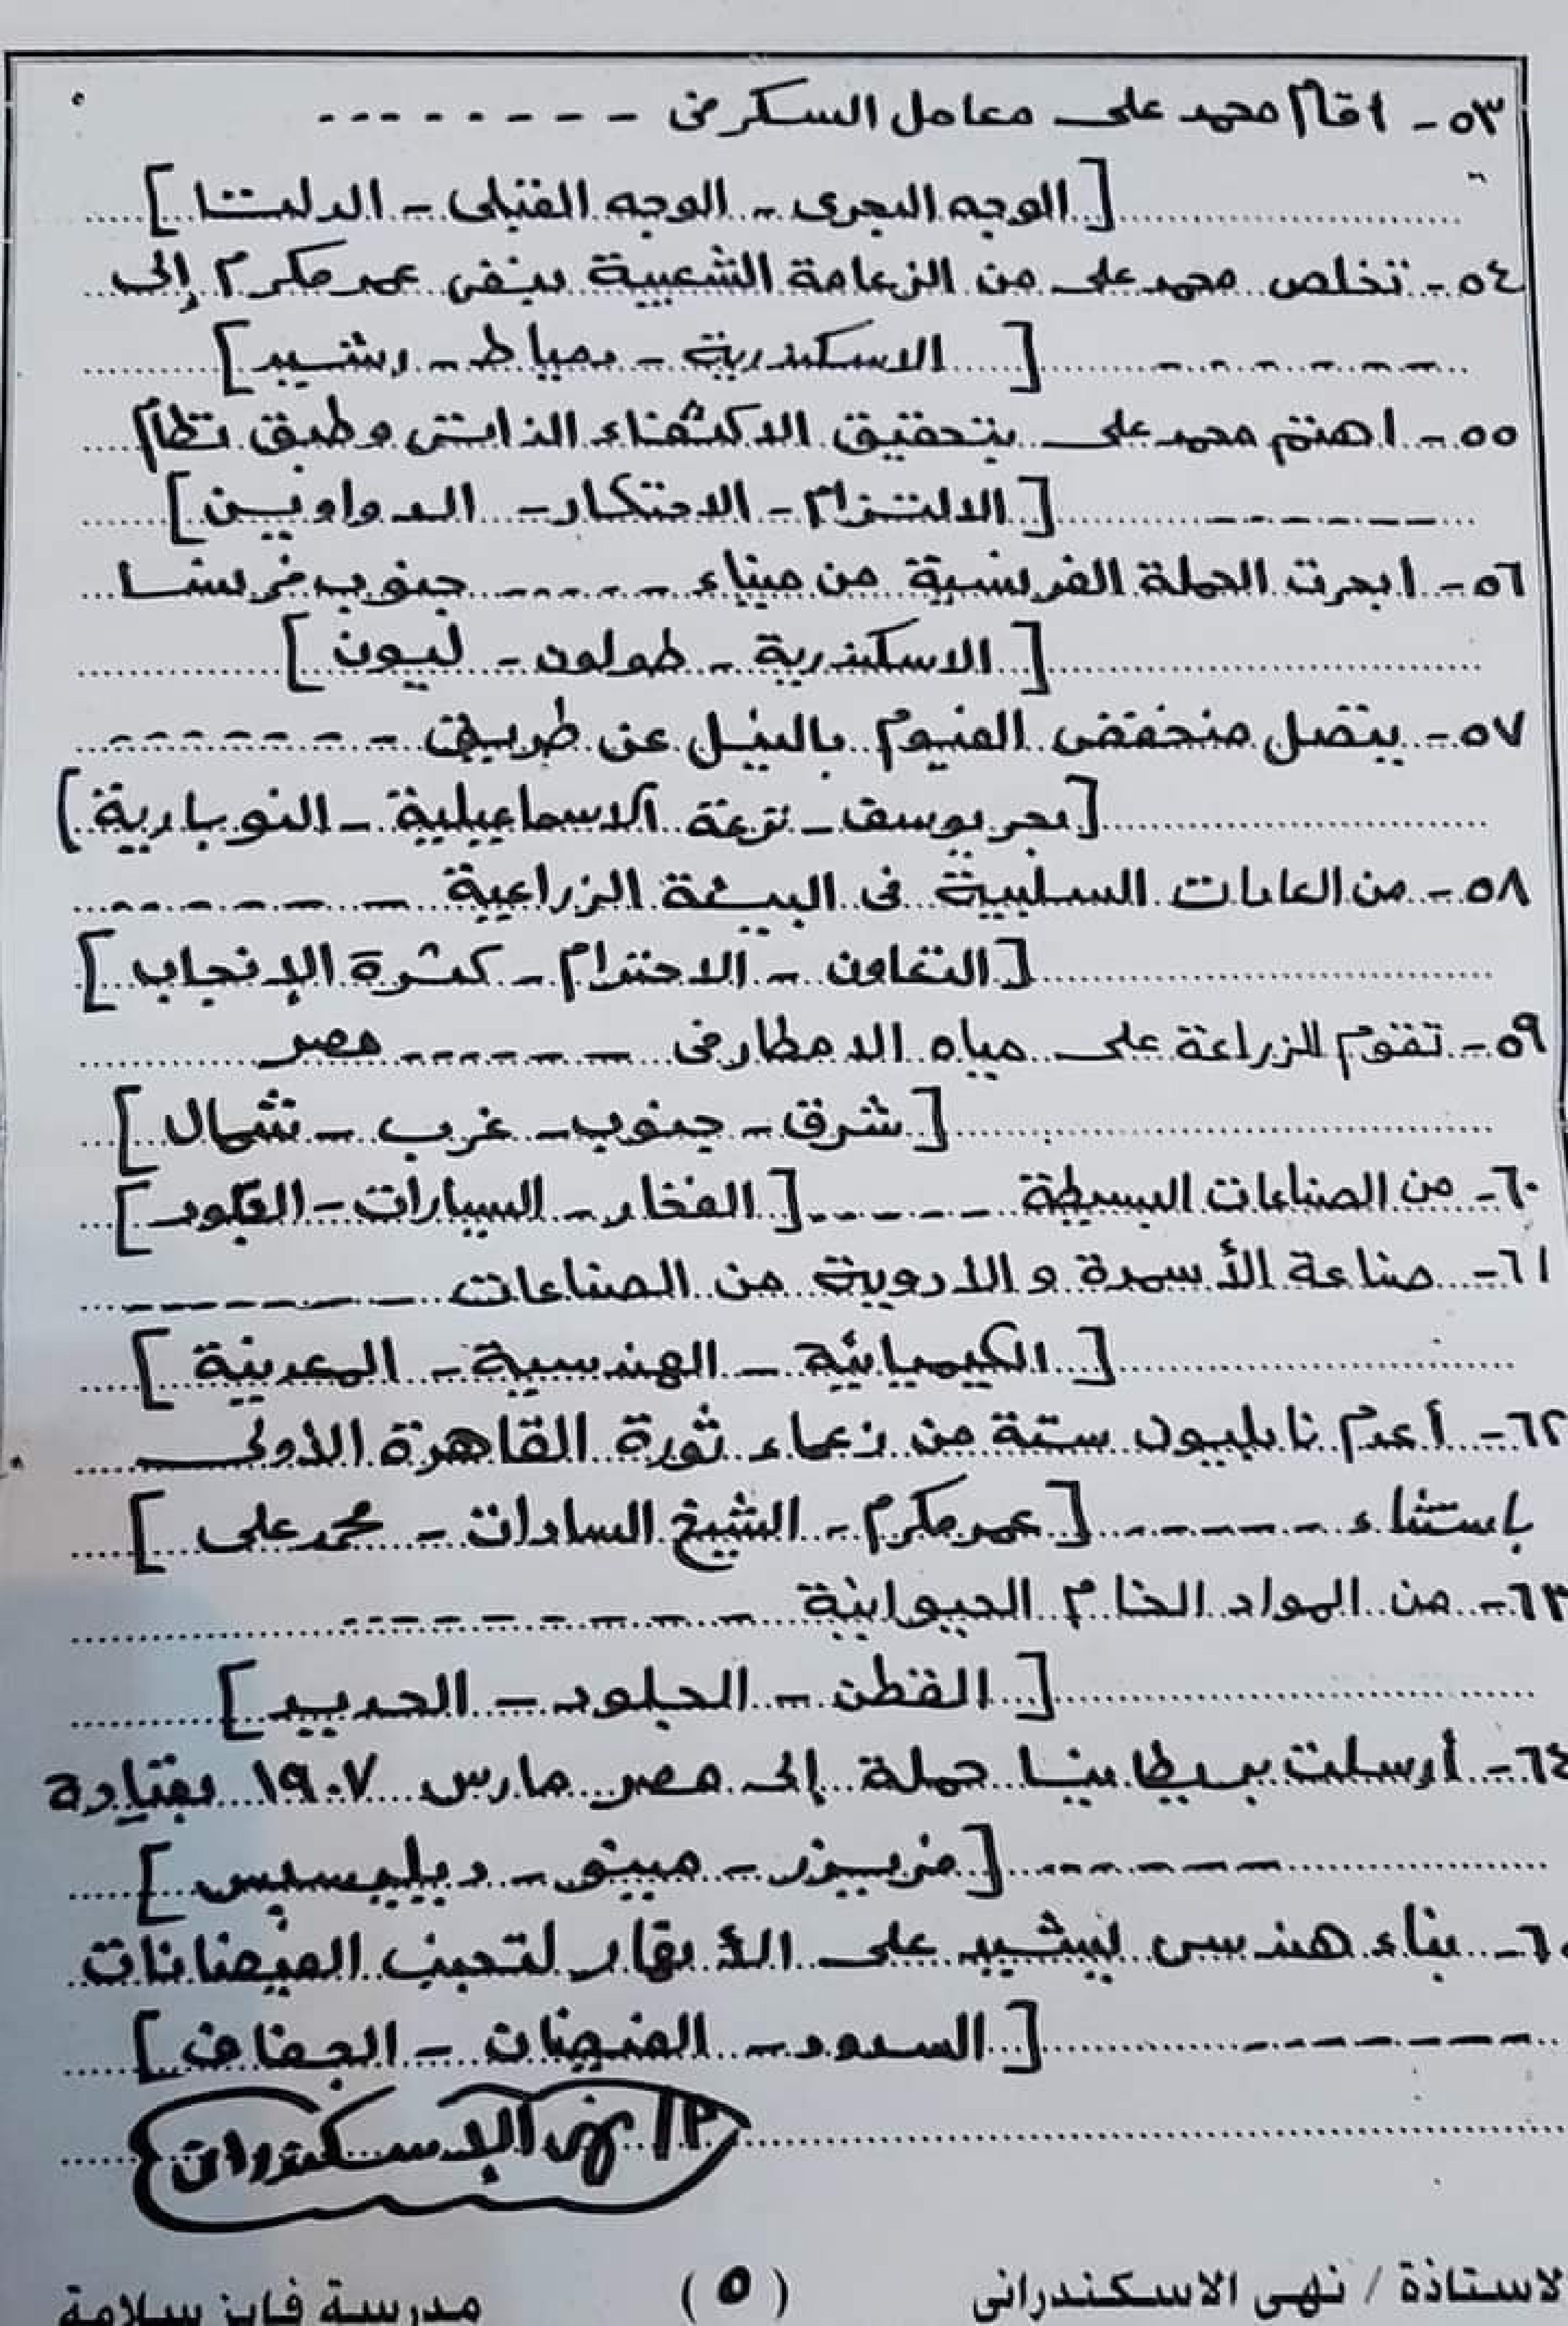 ٥٣- اقام محمد على معامل السكر فى --------
[الوجه البحرى - الوجه القبلى - الدلتا]
٥٤- تخلص محمد على من الزعامة الشعبية بنفى عمر مكرم إلى
------- [الاسكندرية - دمياط - رشيد]
٥٥- اهتم محمد على بتحقيق الاكتفاء الذاتى وطبق نظام
------ [الالتزام - الاحتكار - الدواوين]
٥٦- ابحرت الحملة الفرنسية من ميناء ------ جنوب فرنسا
[الاسكندرية - طولون - ليون]
٥٧- يتصل منخفض الفيوم بالنيل عن طريق --------
[بحر يوسف - ترعة الاسماعيلية - النوبارية)
٥٨- من العادات السلبية فى البيئة الزراعية -------
[التعاون - الاحترام - كثرة الإنجاب]
٥٩- تقوم الزراعة على مياه الامطار فى ------ مصر
[شرق - جنوب - غرب - شمال]
٦٠- من الصناعات البسيطة ------ [الفخار - السيارات -
٦١- صناعة الأسمدة والادوية من الصناعات -------
[الكيميائية - الهندسية - المعدنية]
٦٢- أعدم نابليون ستة من زعماء ثورة القاهرة الأولى
باستثناء ------ [عمر مكرم - الشيخ السادات - محمد على]
٦٣- من المواد الخام الحيوانية --------
[القطن - الجلود - الحديد]
٦٤- أرسلت بريطانيا حملة إلى مصر مارس ١٩٠٧ بقيادة
------ [فريزر - مينو - ديليسبس]
بناء هندسى يشيد على الأنهار لتجنب الفيضانات
------- [السدود - الفيضان - الجفاف]
م/ نهى الاسكندرانى
لاستاذة / نهى الاسكندرانى (٥) مدرسة فايز سلامة